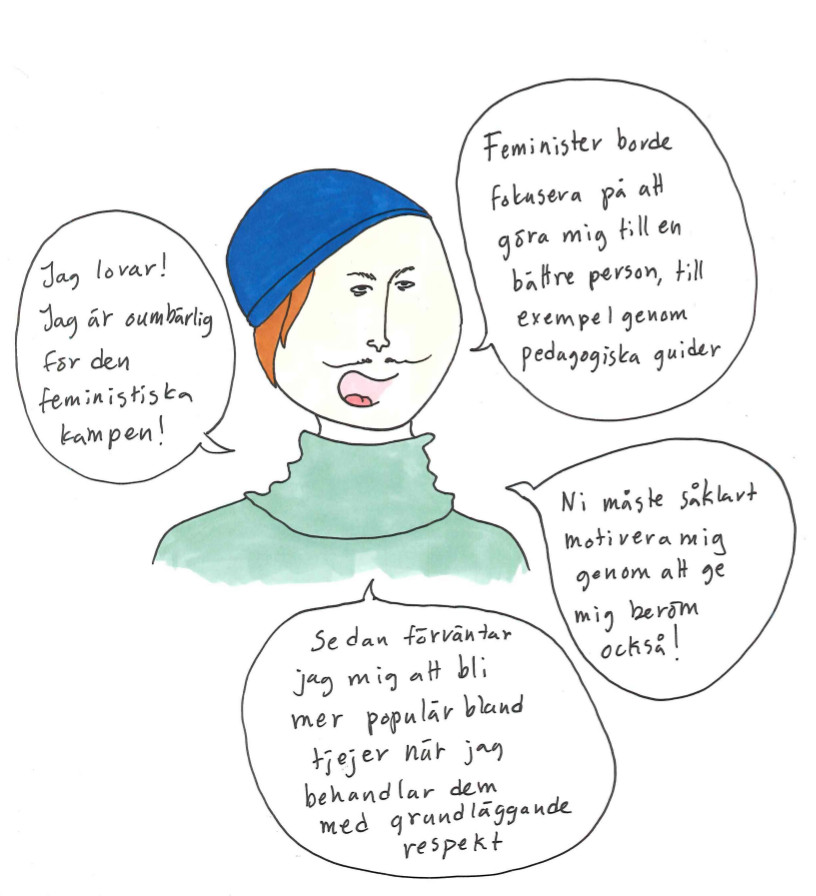 Jag lovar!
Jag är oumbärlig
för den
feministiska
kampen!
Feminister borde
fokusera på att
göra mig till en
bättre person, till
exempel genom
pedagogiska guider
Ni måste såklart
motivera mig
genom att ge
mig beröm
också!
Sedan förväntar
jag mig att bli
mer populär bland
tjejer när jag
behandlar dem
med grundläggande
respekt